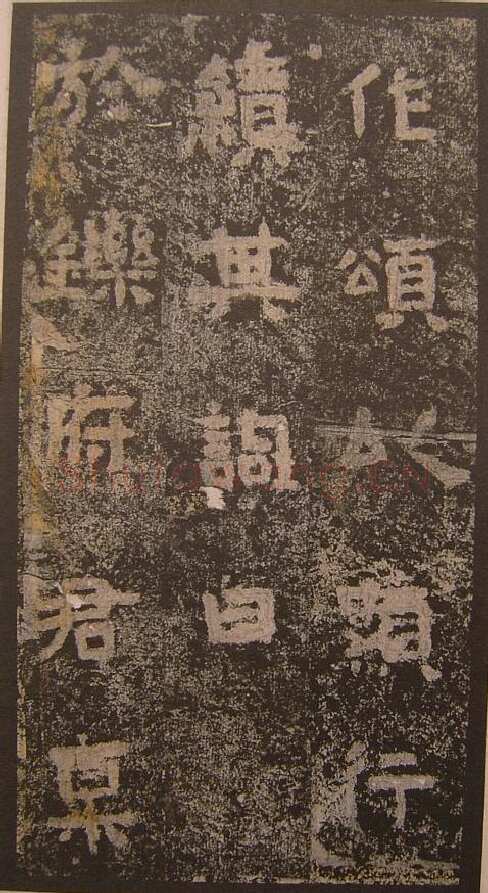 作頌以顯行
績其詞曰
於鑠府君